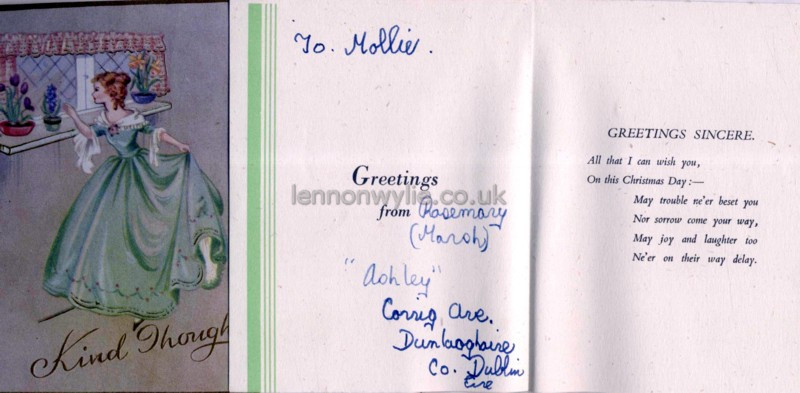 Kind Though
To. Mollie.
Greetings
lennonwylie.co.uk
from Rosemary
(Marsh)
"Ashley"
Corrig Ave.
Dunlaoghaire
Co. Dublin
Eire
GREETINGS SINCERE.
All that I can wish you,
On this Christmas Day:—
May trouble ne'er beset you
Nor sorrow come your way,
May joy and laughter too
Ne'er on their way delay.